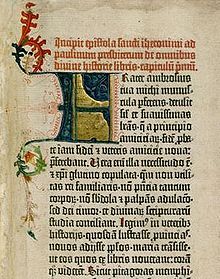 Incipit epistola sancti iheronimi ad
paulinum presbiterum de omnibus
divine historie libris. capitulū pmū.
Frater ambrosius
tua michi munus-
cula pferens. detulit
sil' et suavissimas
lrās. q̄ a principio
amiciciaȝ fidē pbate
iam fidei et veteris amicicie nova
pferebant. Vera eni illa necessitudo ē.
et xpi glutino copulata. qm̄ non utili-
tas rei familiaris. nō pn̄cia tantum
corpoȝ. nō subdola et palpās adulacō.
sed dei timor. et divinaȝ scripturarum
studia conciliant. Legim⁹ in veterib⁹
historijs. quosdā lustrasse provincias.
novos adijsse pplōs. maria trāsisse.
ut eos quos ex libris noverant: corā
q̄ȝ viderēt. Sicut pitagoras memphi-